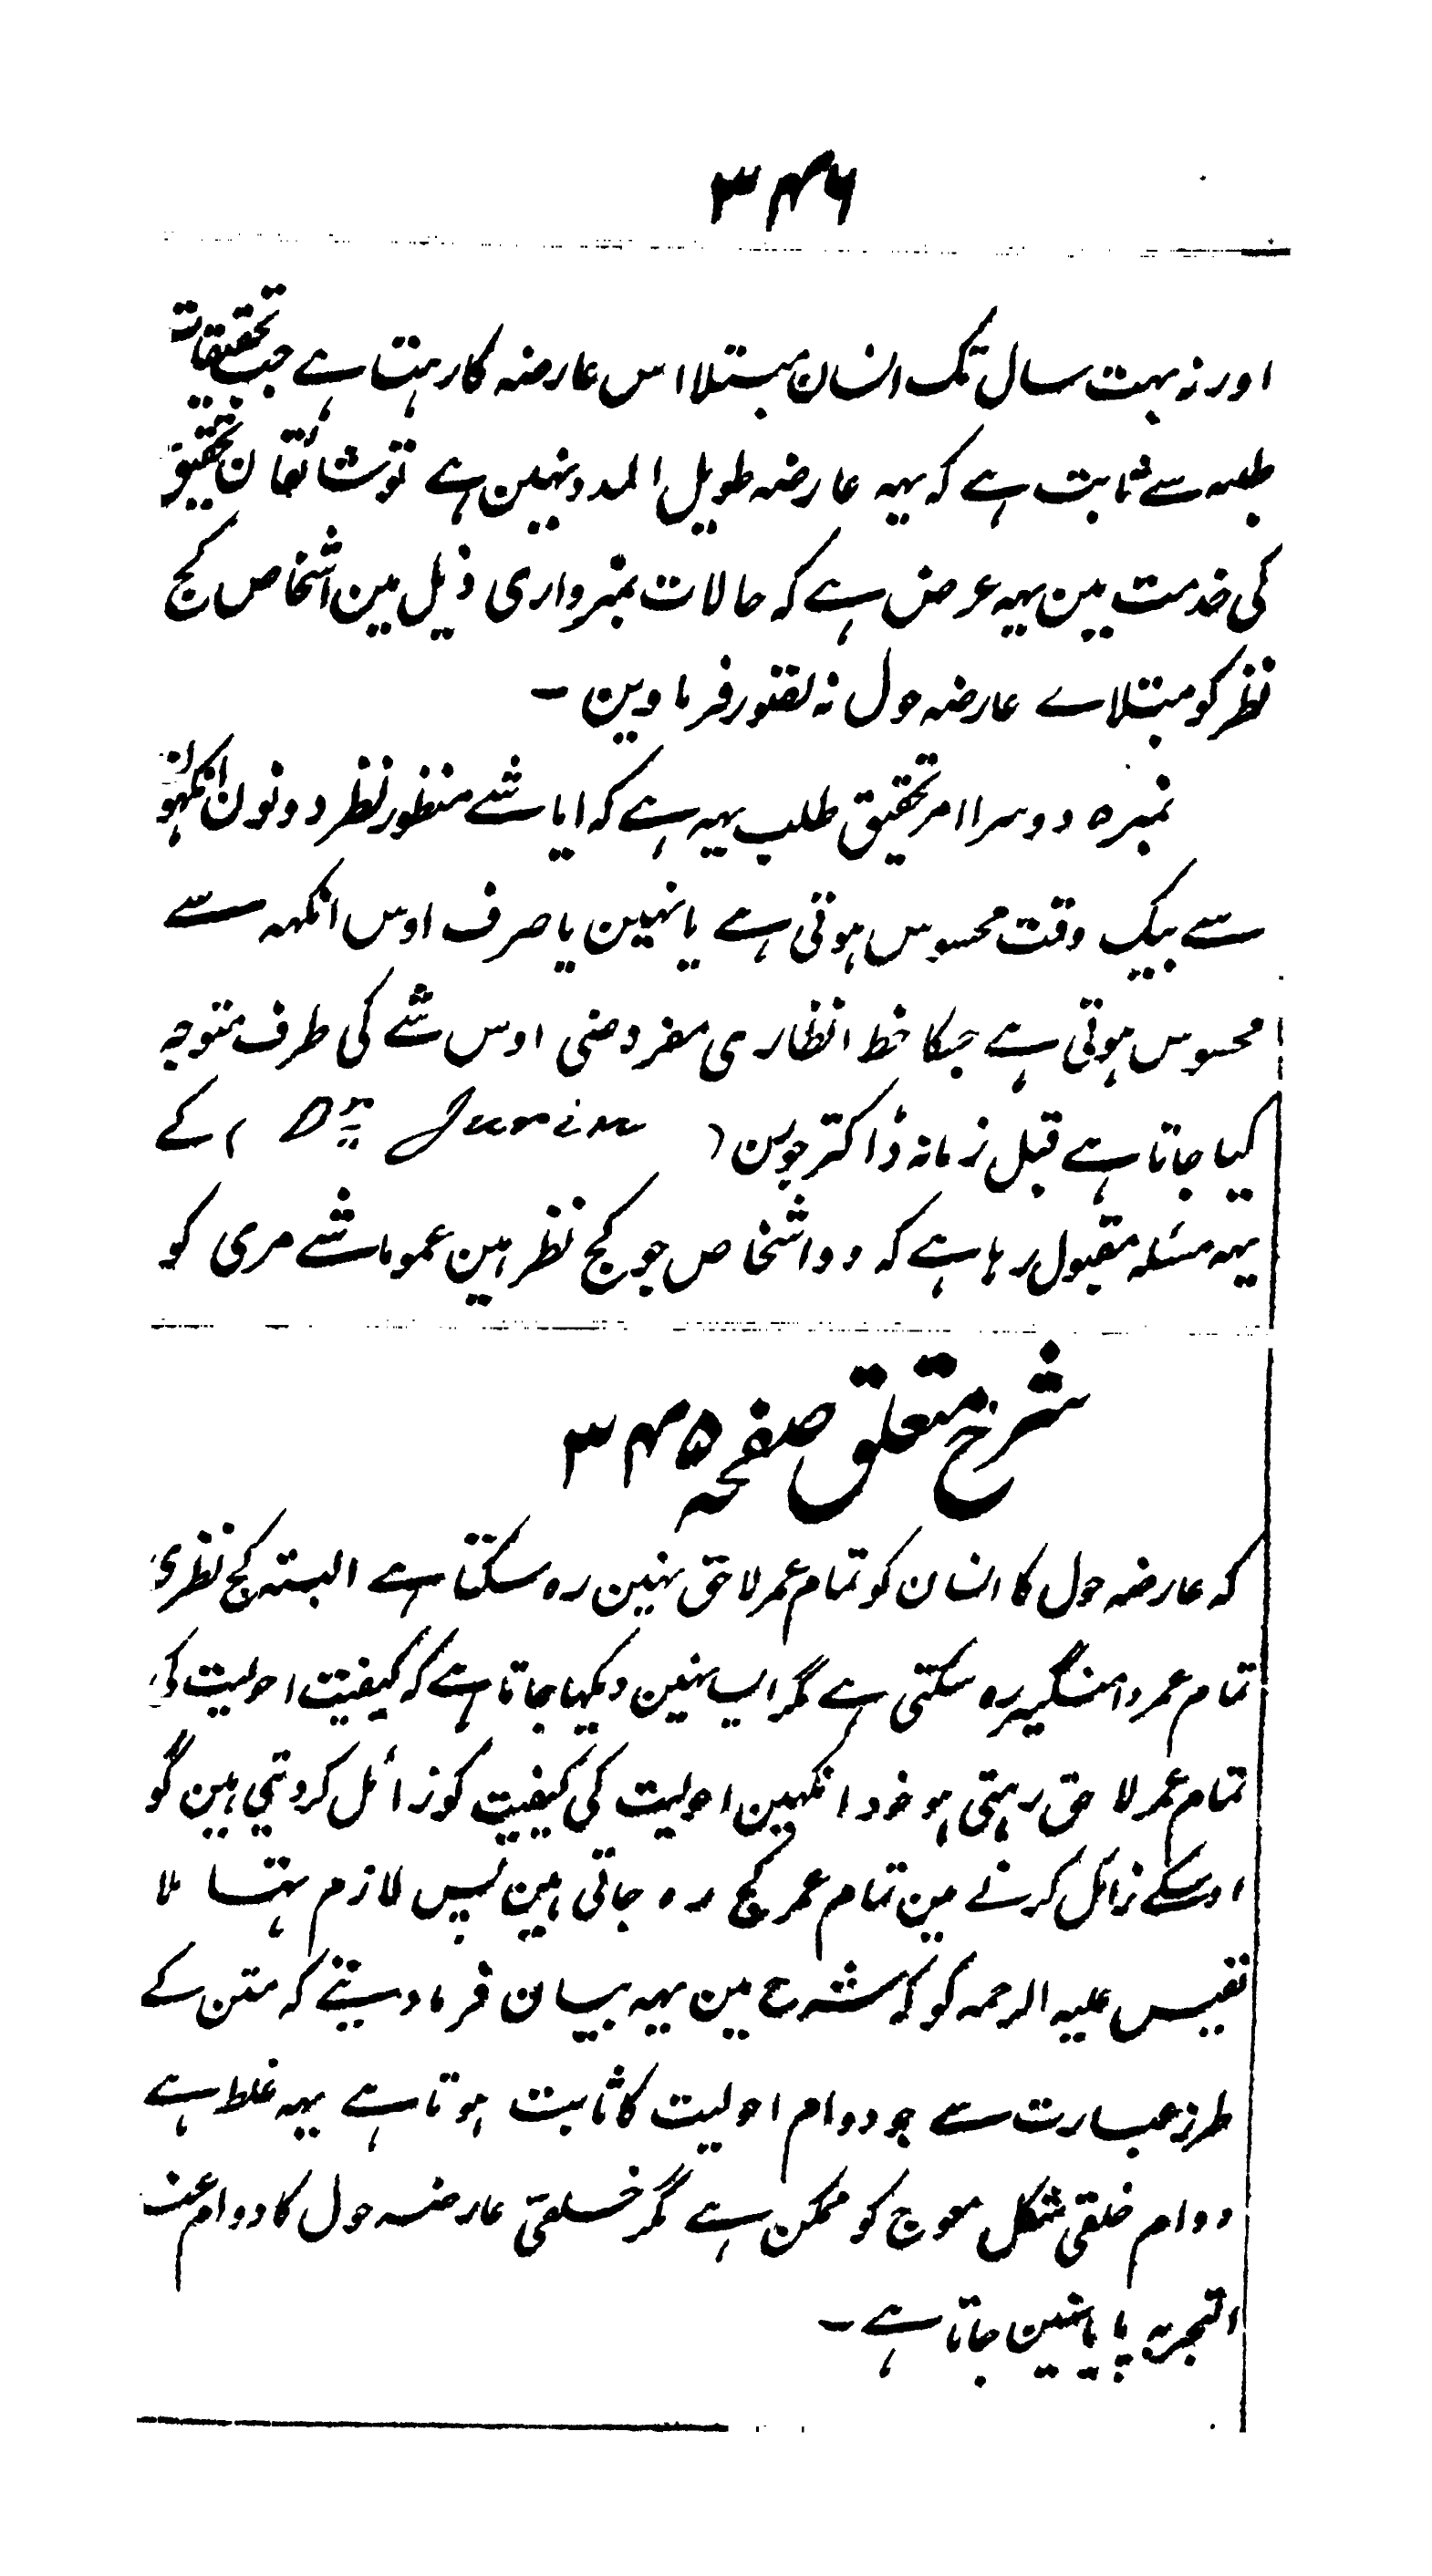 ۳۴۶
اور نہ بہت سال تک انسان مبتلا اس عارضہ کا رہتا ہے جب تحقیقات
طبیہ سے ثابت ہے کہ یہہ عارضہ طویل المدد نہین ہے تو شائقان تحقیق
کی خدمت مین یہہ عرض ہے کہ حالات نمبرواری ذیل مین اشخاص کج
نظر کو مبتلاے عارضہ حول نہ تصور فرماوین ۔
نمبرہ دوسرا امر تحقیق طلب یہہ ہے کہ ایا شے منظور نظر دونون انکہو
سے بیک وقت محسوس ہوتی ہے یا نہین یا صرف اوس انکہہ سے
محسوس ہوتی ہے جسکا خط انظاری مفروضی اوس شے کی طرف متوجہ
کیا جاتا ہے قبل زمانہ ڈاکتر جورین ( Dr Jurin ) کے
یہہ مسئلہ مقبول رہا ہے کہ وو اشخاص جو کج نظر ہین عموما شے مری کو
شرح متعلق صفحہ ۳۴۵
کہ عارضہ حول کا انسان کو تمام عمر لاحق نہین رہ سکتا ہے البتہ کج نظری
تمام عمر دامنگیر رہ سکتی ہے مگر ایسا نہین دیکہا جاتا ہے کہ کیفیت احولیت کی
تمام عمر لاحق رہتی ہو خود انکہین احولیت کی کیفیت کو زائل کردیتی ہین گو
اوسکے زائل کرنے مین تمام عمر کج رہ جاتی ہین پس لازم تہا ملا
نفیس علیہ الرحمہ کو کہ شرح مین یہہ بیان فرما دیتے کہ متن کے
طرز عبارت سے جو دوام احولیت کا ثابت ہوتا ہے یہہ غلط ہے
دوام خلقی شکل معوج کو ممکن ہے مگر خلقی عارضہ حول کا دوام عند
التجربہ پایا نہین جاتا ہے ۔